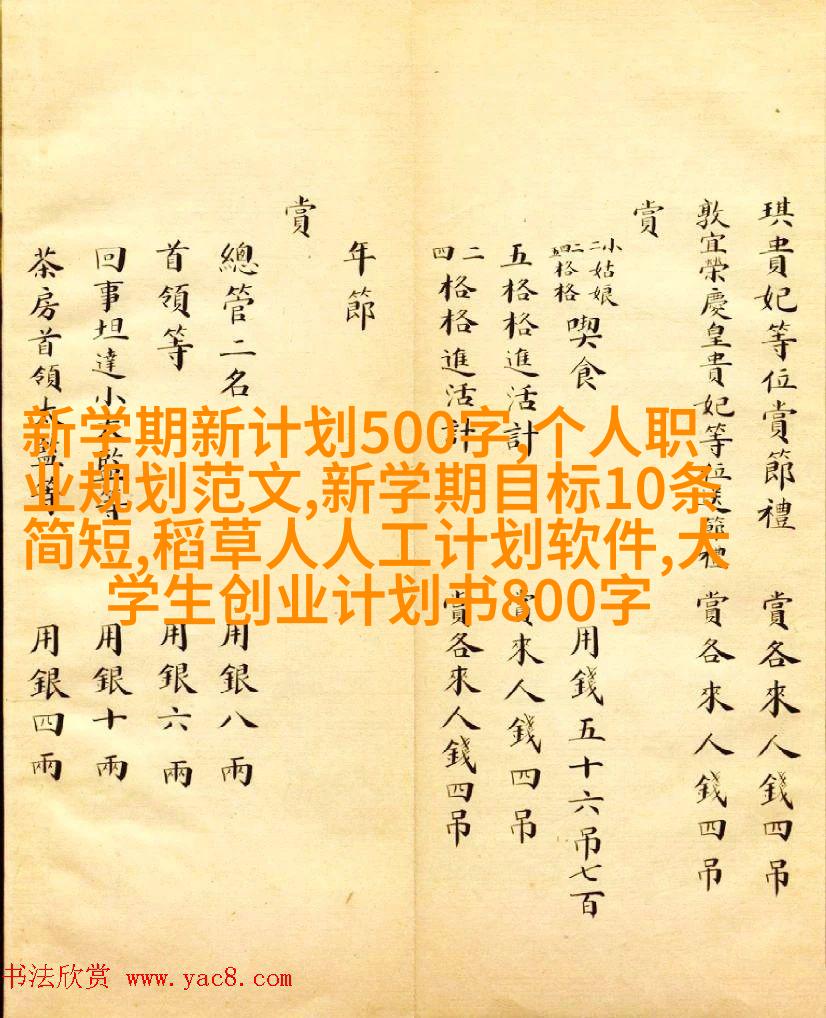 琪貴妃等位賞節禮 賞各來人錢四吊
敦宜榮慶皇貴妃等位送節禮 賞各來人錢四吊
賞
小姑娘
二二格格
四格格 喫食 用錢五十六吊七百
五格格進活計 賞來人錢四吊
二四格格進活計 賞各來人錢四吊
年節
賞
總管二名 用銀八兩
首領等 用銀六兩
回事坦達小太監等 用銀十兩
茶房首領太監等 用銀四兩
新学期新计划500字,个人职
业规划范文,新学期目标10条
简短,稻草人人工计划软件,大
学生创业计划书800字
书法欣赏 www.yac8.com